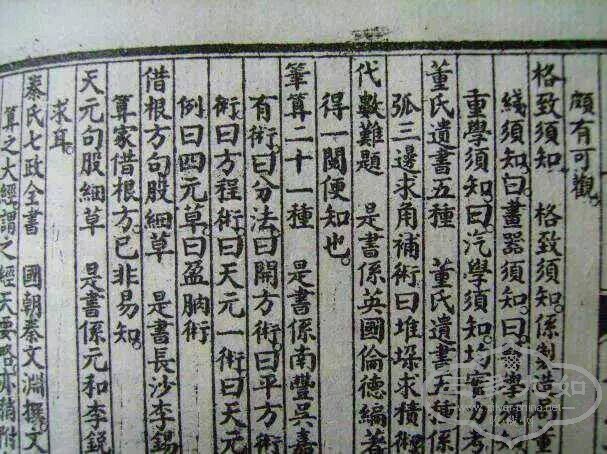 頗有可觀
格致須知　格致須知係製造
綫須知曰畫器須知曰
重學須知曰汽學須知
董氏遺書五種　董氏遺書五種係
弧三邊求角補術曰堆垛求積術
代數難題　是書係英國倫德編著
得一閱便知也
筆算二十一種　是書係南豐吳嘉
有術曰分法曰開方術曰平方術
術曰方程術曰天元一術曰天元
例曰四元草曰盈朒術
借根方句股細草　是書長沙李錫
算家借根方已非易知
天元句股細草　是書係元和李銳
求耳
秦氏七政全書　國朝秦文淵撰文
算之大經謂之經天要略亦精附